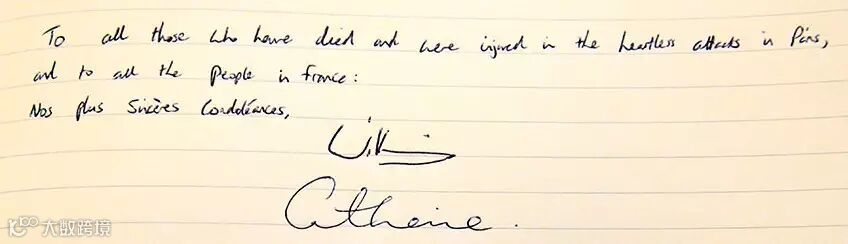 To all those who have died and were injured in the heartless attacks in Paris,
and to all the people in France:
Nos plus Sincères Condoléances,
William
Catherine.
大数跨境